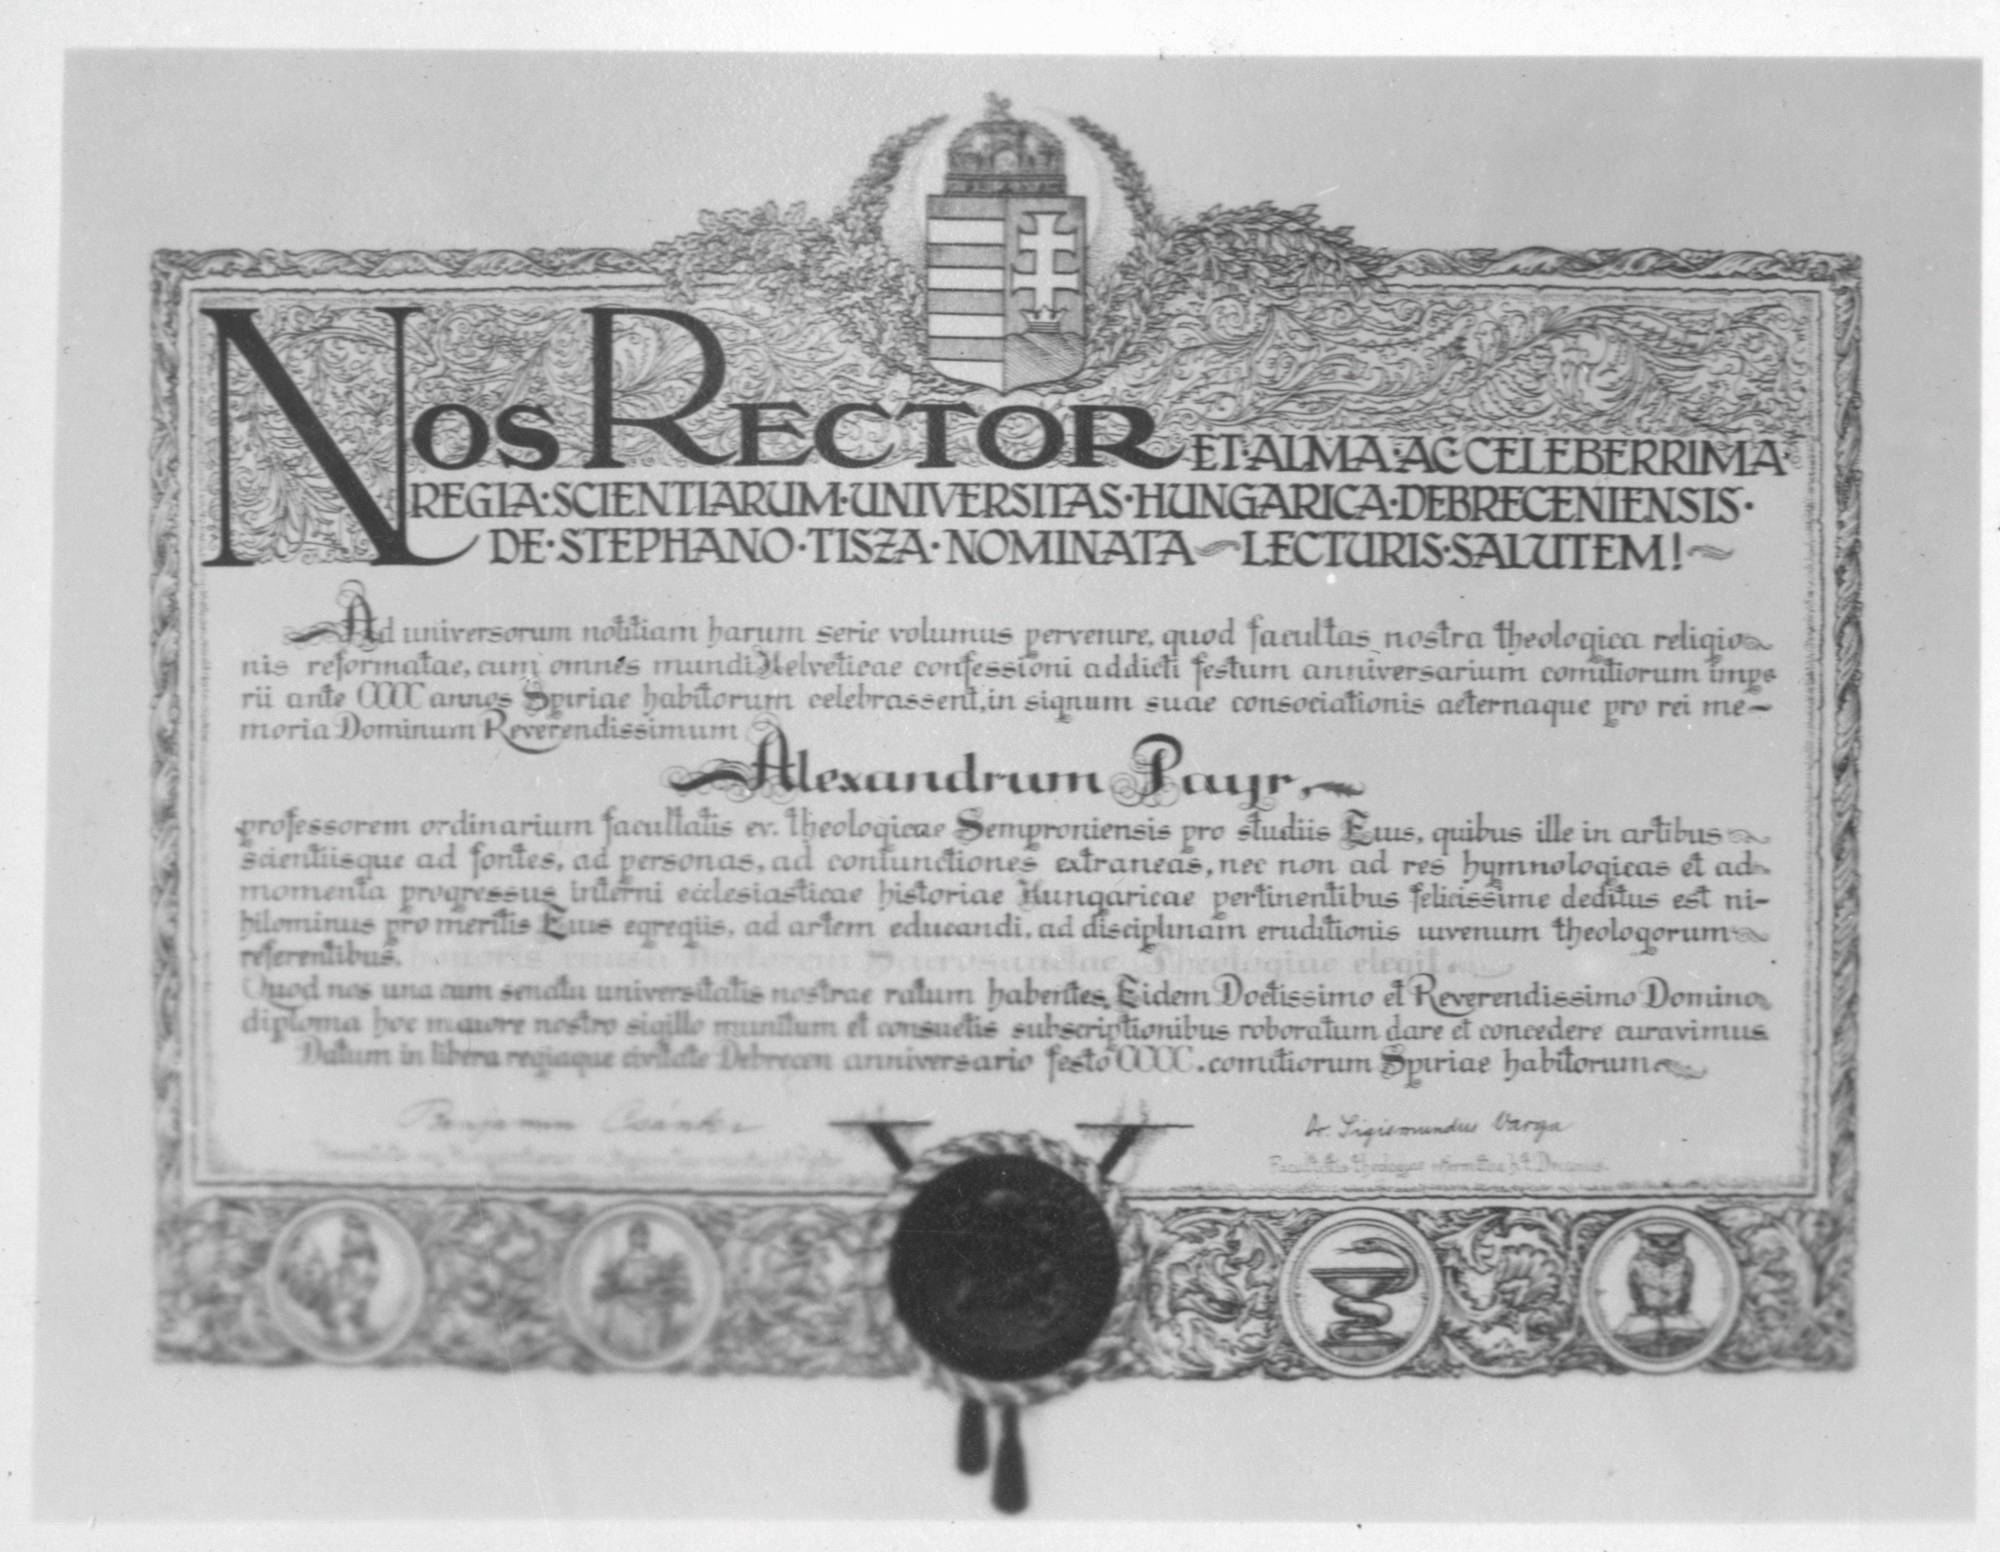 NOS RECTOR ET·ALMA·AC·CELEBERRIMA·
REGIA·SCIENTIARUM·UNIVERSITAS·HUNGARICA·DEBRECENIENSIS·
DE·STEPHANO·TISZA·NOMINATA LECTURIS·SALUTEM!
Ad universorum notitiam harum serie volumus pervenire, quod facultas nostra theologica religio
nis reformatae, cum omnes mundi Helveticae confessioni addicti festum anniversarium comitiorum impe
rii ante CCCC annos Spiriae habitorum celebrassent, in signum suae consociationis aeternaque pro rei me-
moria Dominum Reverendissimum
Alexandrum Payr,
professorem ordinarium facultatis ev. theologicae Semproniensis pro studiis Eius, quibus ille in artibus
scientiisque ad fontes, ad personas, ad coniunctiones extraneas, nec non ad res hymnologicas et ad
momenta progressus interni ecclesiasticae historiae Hungaricae pertinentibus felicissime deditus est ni-
hilominus pro meritis Eius egregiis, ad artem educandi, ad disciplinam eruditionis iuvenum theologorum
referentibus, honoris causa Doctorem Sacrosanctae Theologiae elegit
Quod nos una cum senatu universitatis nostrae ratum habentes Eidem Doctissimo et Reverendissimo Domino
diploma hoc maiore nostro sigillo munitum et consuetis subscriptionibus roboratum dare et concedere curavimus
Datum in libera regiaque civitate Debrecen anniversario festo CCCC. comitiorum Spiriae habitorum
Benjamin Csánki
Dr. Sigismundus Varga
Facultatis theologiae reformatae h. t. Decanus.